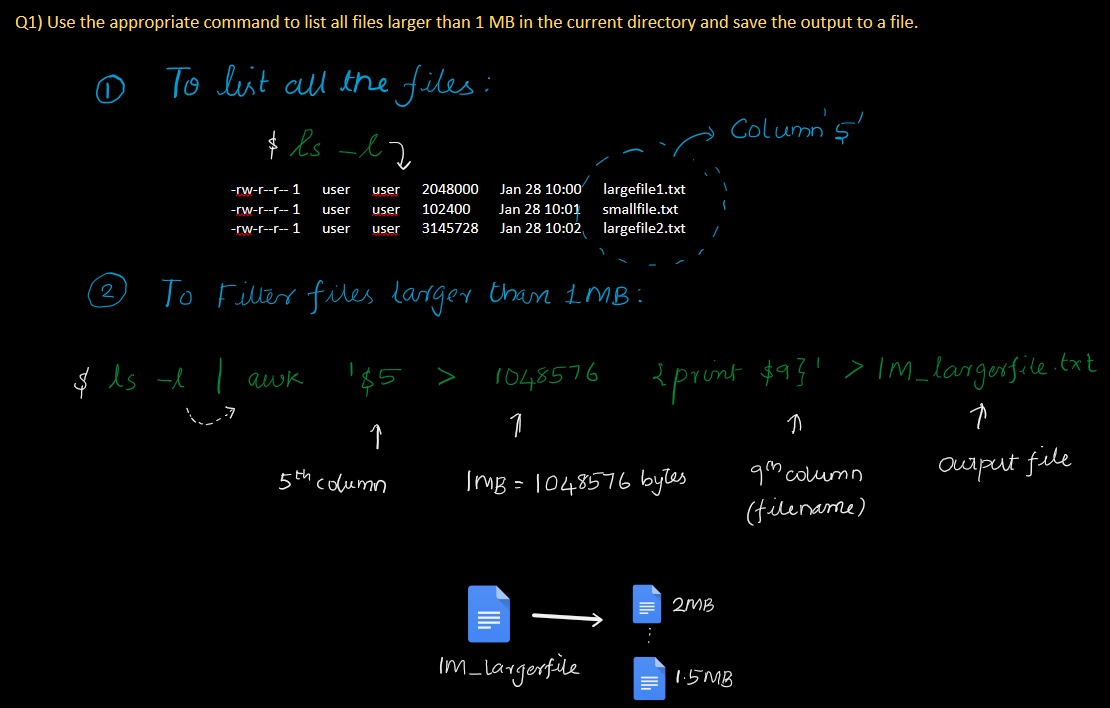 Q1) Use the appropriate command to list all files larger than 1 MB in the current directory and save the output to a file.
① To list all the files:
$ ls -l
Column '5'
-rw-r--r-- 1 user user 2048000 Jan 28 10:00 largefile1.txt
-rw-r--r-- 1 user user 102400 Jan 28 10:01 smallfile.txt
-rw-r--r-- 1 user user 3145728 Jan 28 10:02 largefile2.txt
② To Filter files larger than 1MB:
$ ls -l | awk '$5 > 1048576 {print $9}' > 1M_largerfile.txt
5th column
1MB = 1048576 bytes
9th column
(filename)
output file
2MB
1M_largerfile
1.5MB